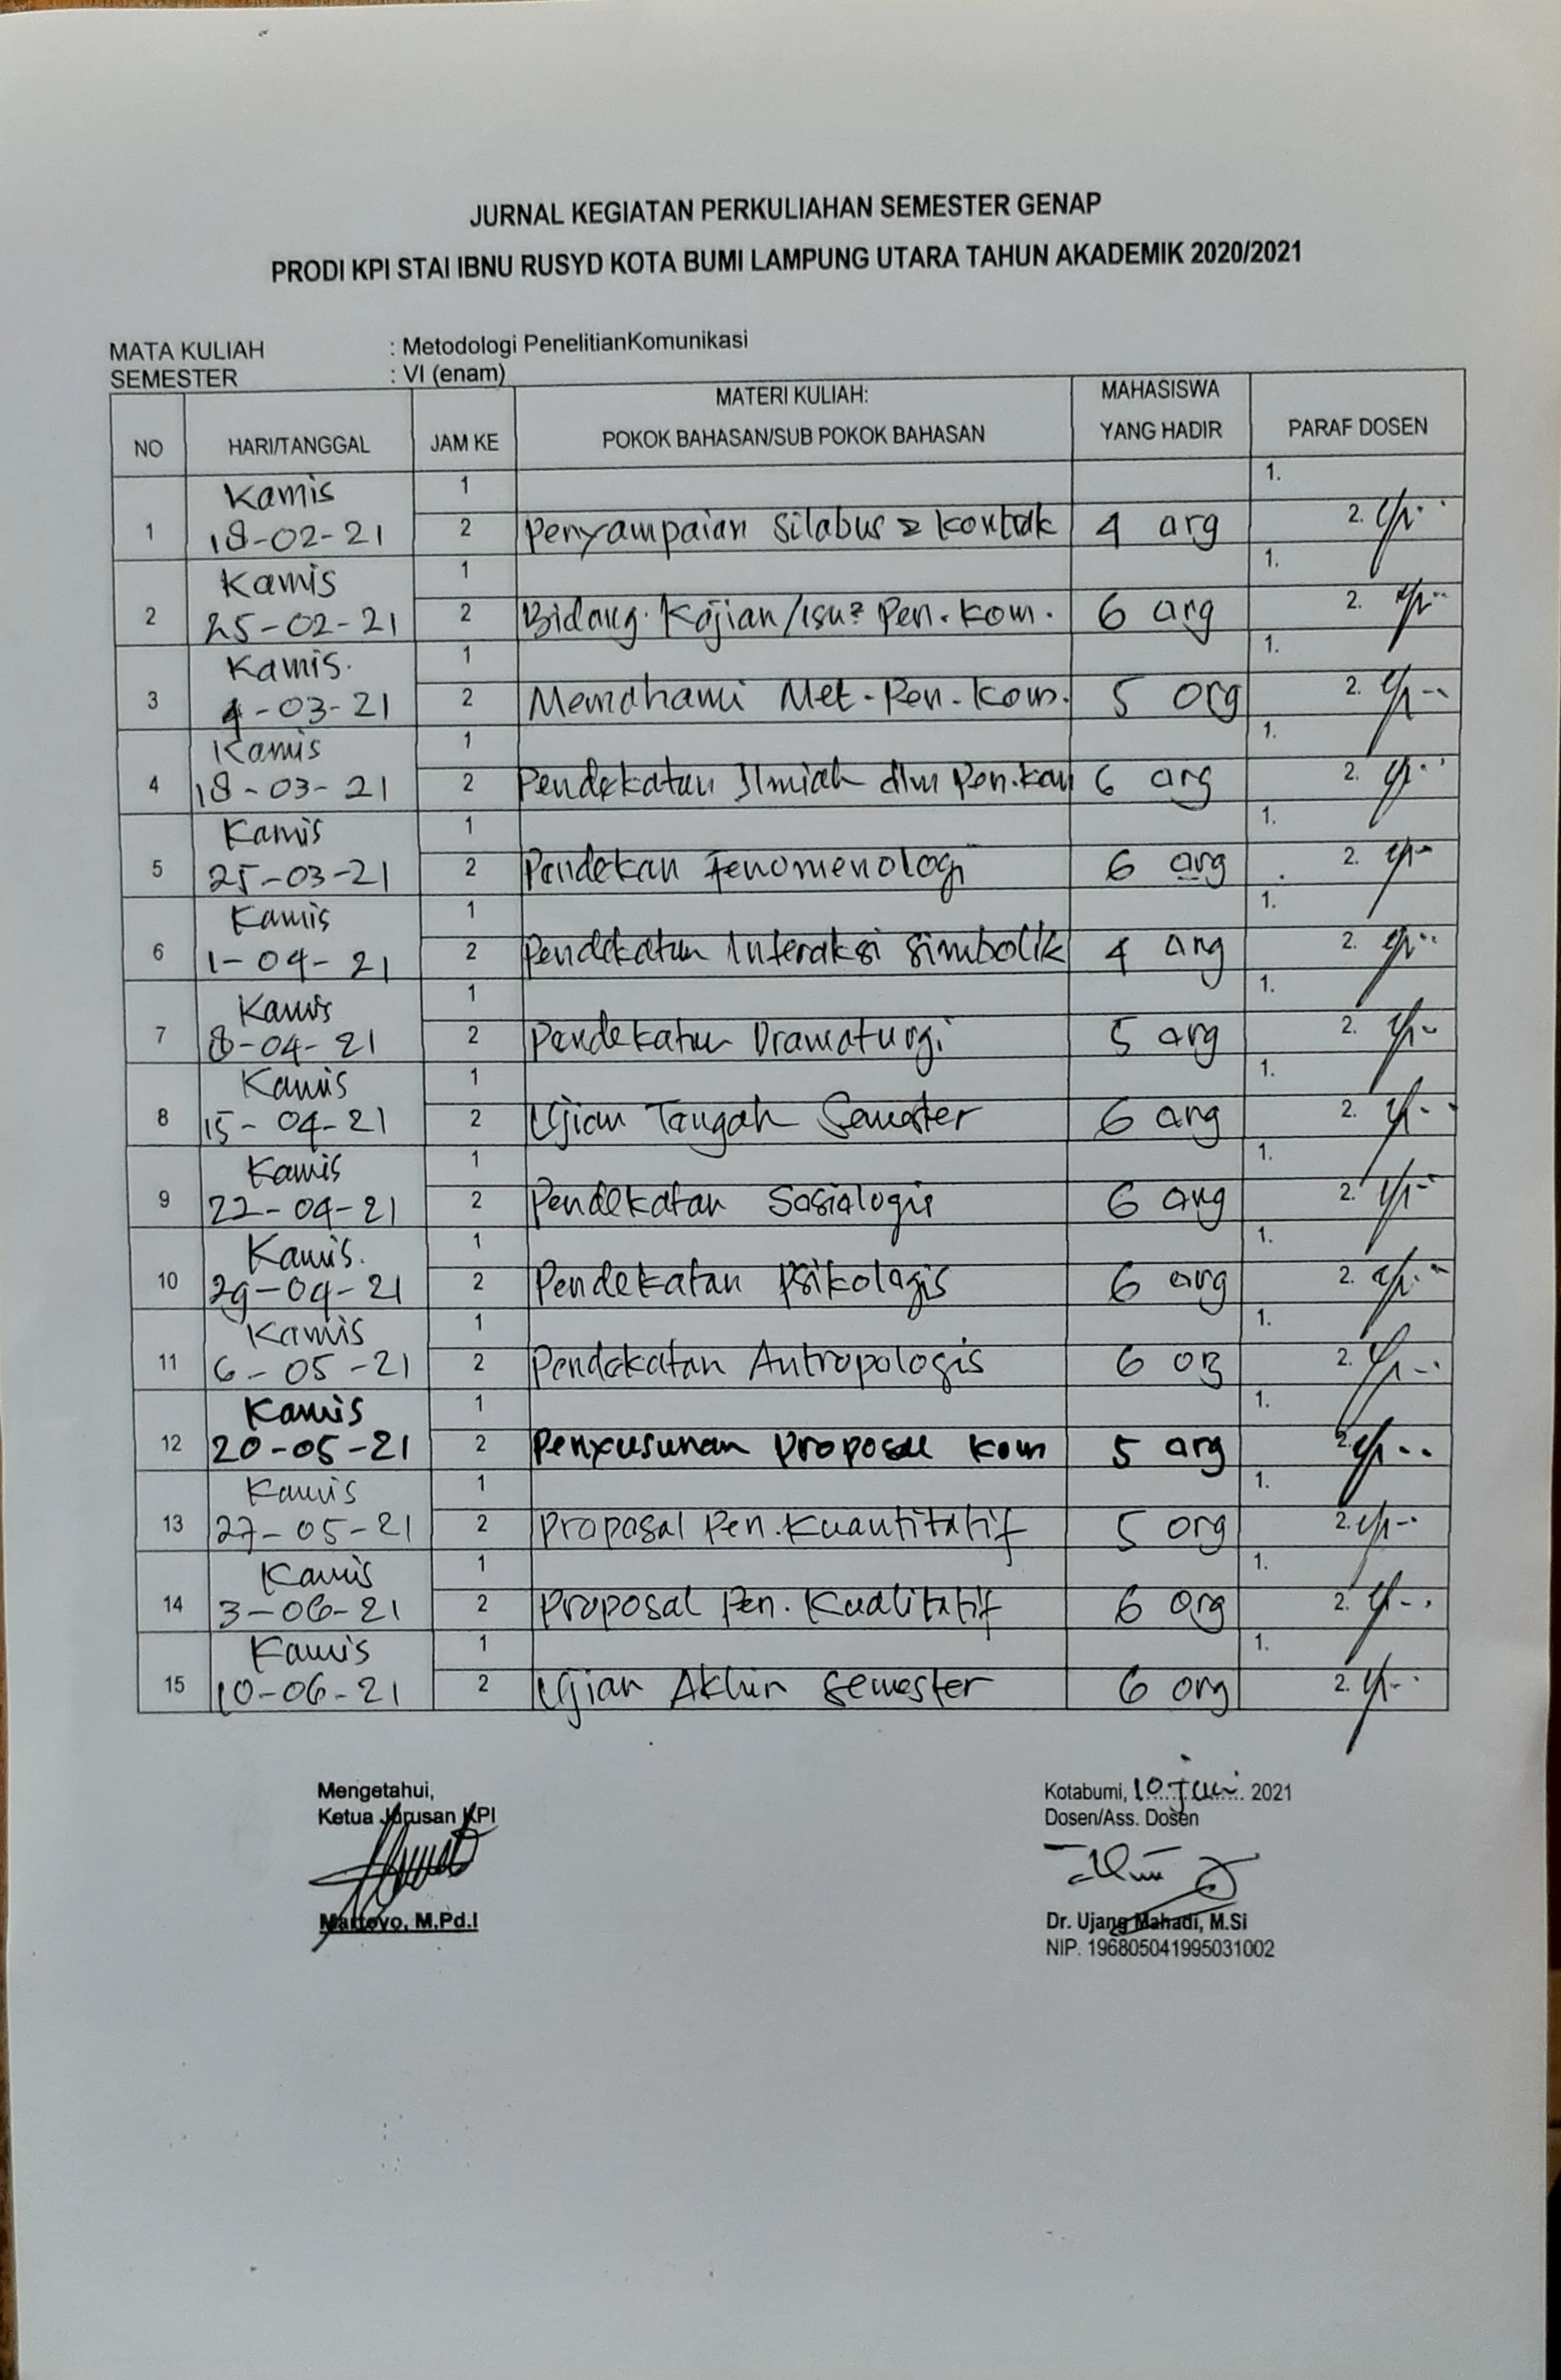 JURNAL KEGIATAN PERKULIAHAN SEMESTER GENAP
PRODI KPI STAI IBNU RUSYD KOTA BUMI LAMPUNG UTARA TAHUN AKADEMIK 2020/2021
MATA KULIAH : Metodologi PenelitianKomunikasi
SEMESTER : VI (enam)
NO HARI/TANGGAL JAM KE MATERI KULIAH: POKOK BAHASAN/SUB POKOK BAHASAN MAHASISWA YANG HADIR PARAF DOSEN
Kamis 1 1.
1 18-02-21 2 Penyampaian Silabus & kontrak 4 org 2.
Kamis 1 1.
2 25-02-21 2 Bidang Kajian/isu2 Pen. Kom. 6 org 2.
Kamis. 1 1.
3 4-03-21 2 Memahami Met-Pen. Kom. 5 org 2.
Kamis 1 1.
4 18-03-21 2 Pendekatan Ilmiah dlm Pen.kom 6 org 2.
Kamis 1 1.
5 25-03-21 2 Pendekan Fenomenologi 6 org 2.
Kamis 1 1.
6 1-04-21 2 Pendekatan Interaksi Simbolik 4 org 2.
Kamis 1 1.
7 8-04-21 2 Pendekatan Dramaturgi 5 org 2.
Kamis 1 1.
8 15-04-21 2 Ujian Tengah Semester 6 org 2.
Kamis 1 1.
9 22-04-21 2 Pendekatan Sosiologis 6 org 2.
Kamis. 1 1.
10 29-04-21 2 Pendekatan Psikologis 6 org 2.
Kamis 1 1.
11 6-05-21 2 Pendekatan Antropologis 6 org 2.
Kamis 1 1.
12 20-05-21 2 Penyusunan Proposal Kom 5 org 2.
Kamis 1 1.
13 27-05-21 2 Proposal Pen. Kuantitatif 5 org 2.
Kamis 1 1.
14 3-06-21 2 Proposal Pen. Kualitatif 6 org 2.
Kamis 1 1.
15 10-06-21 2 Ujian Akhir Semester 6 org 2.
Mengetahui,
Ketua Jurusan KPI
Martoyo, M.Pd.I
Kotabumi, 10 juni 2021
Dosen/Ass. Dosen
Dr. Ujang Mahadi, M.Si
NIP. 196805041995031002